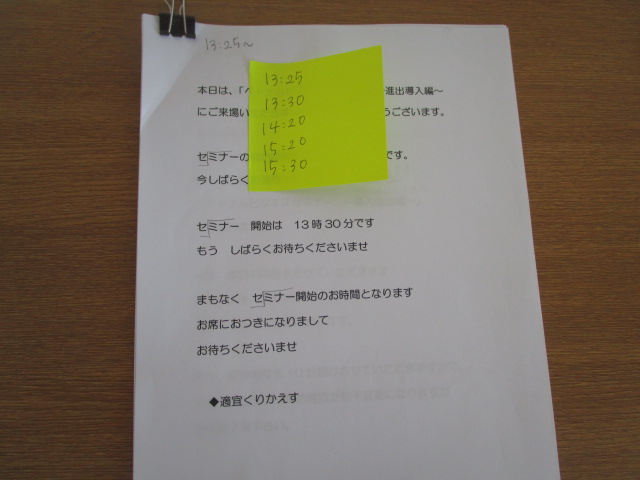 13:25～
13:25
13:30
14:20
15:20
15:30
本日は、「ベ 進出導入編～
にご来場い うございます。
セミナーの です。
今しばらく
セミナー 開始は 13時30分です
もう しばらくお待ちくださいませ
まもなく セミナー開始のお時間となります
お席におつきになりまして
お待ちくださいませ
◆適宜くりかえす